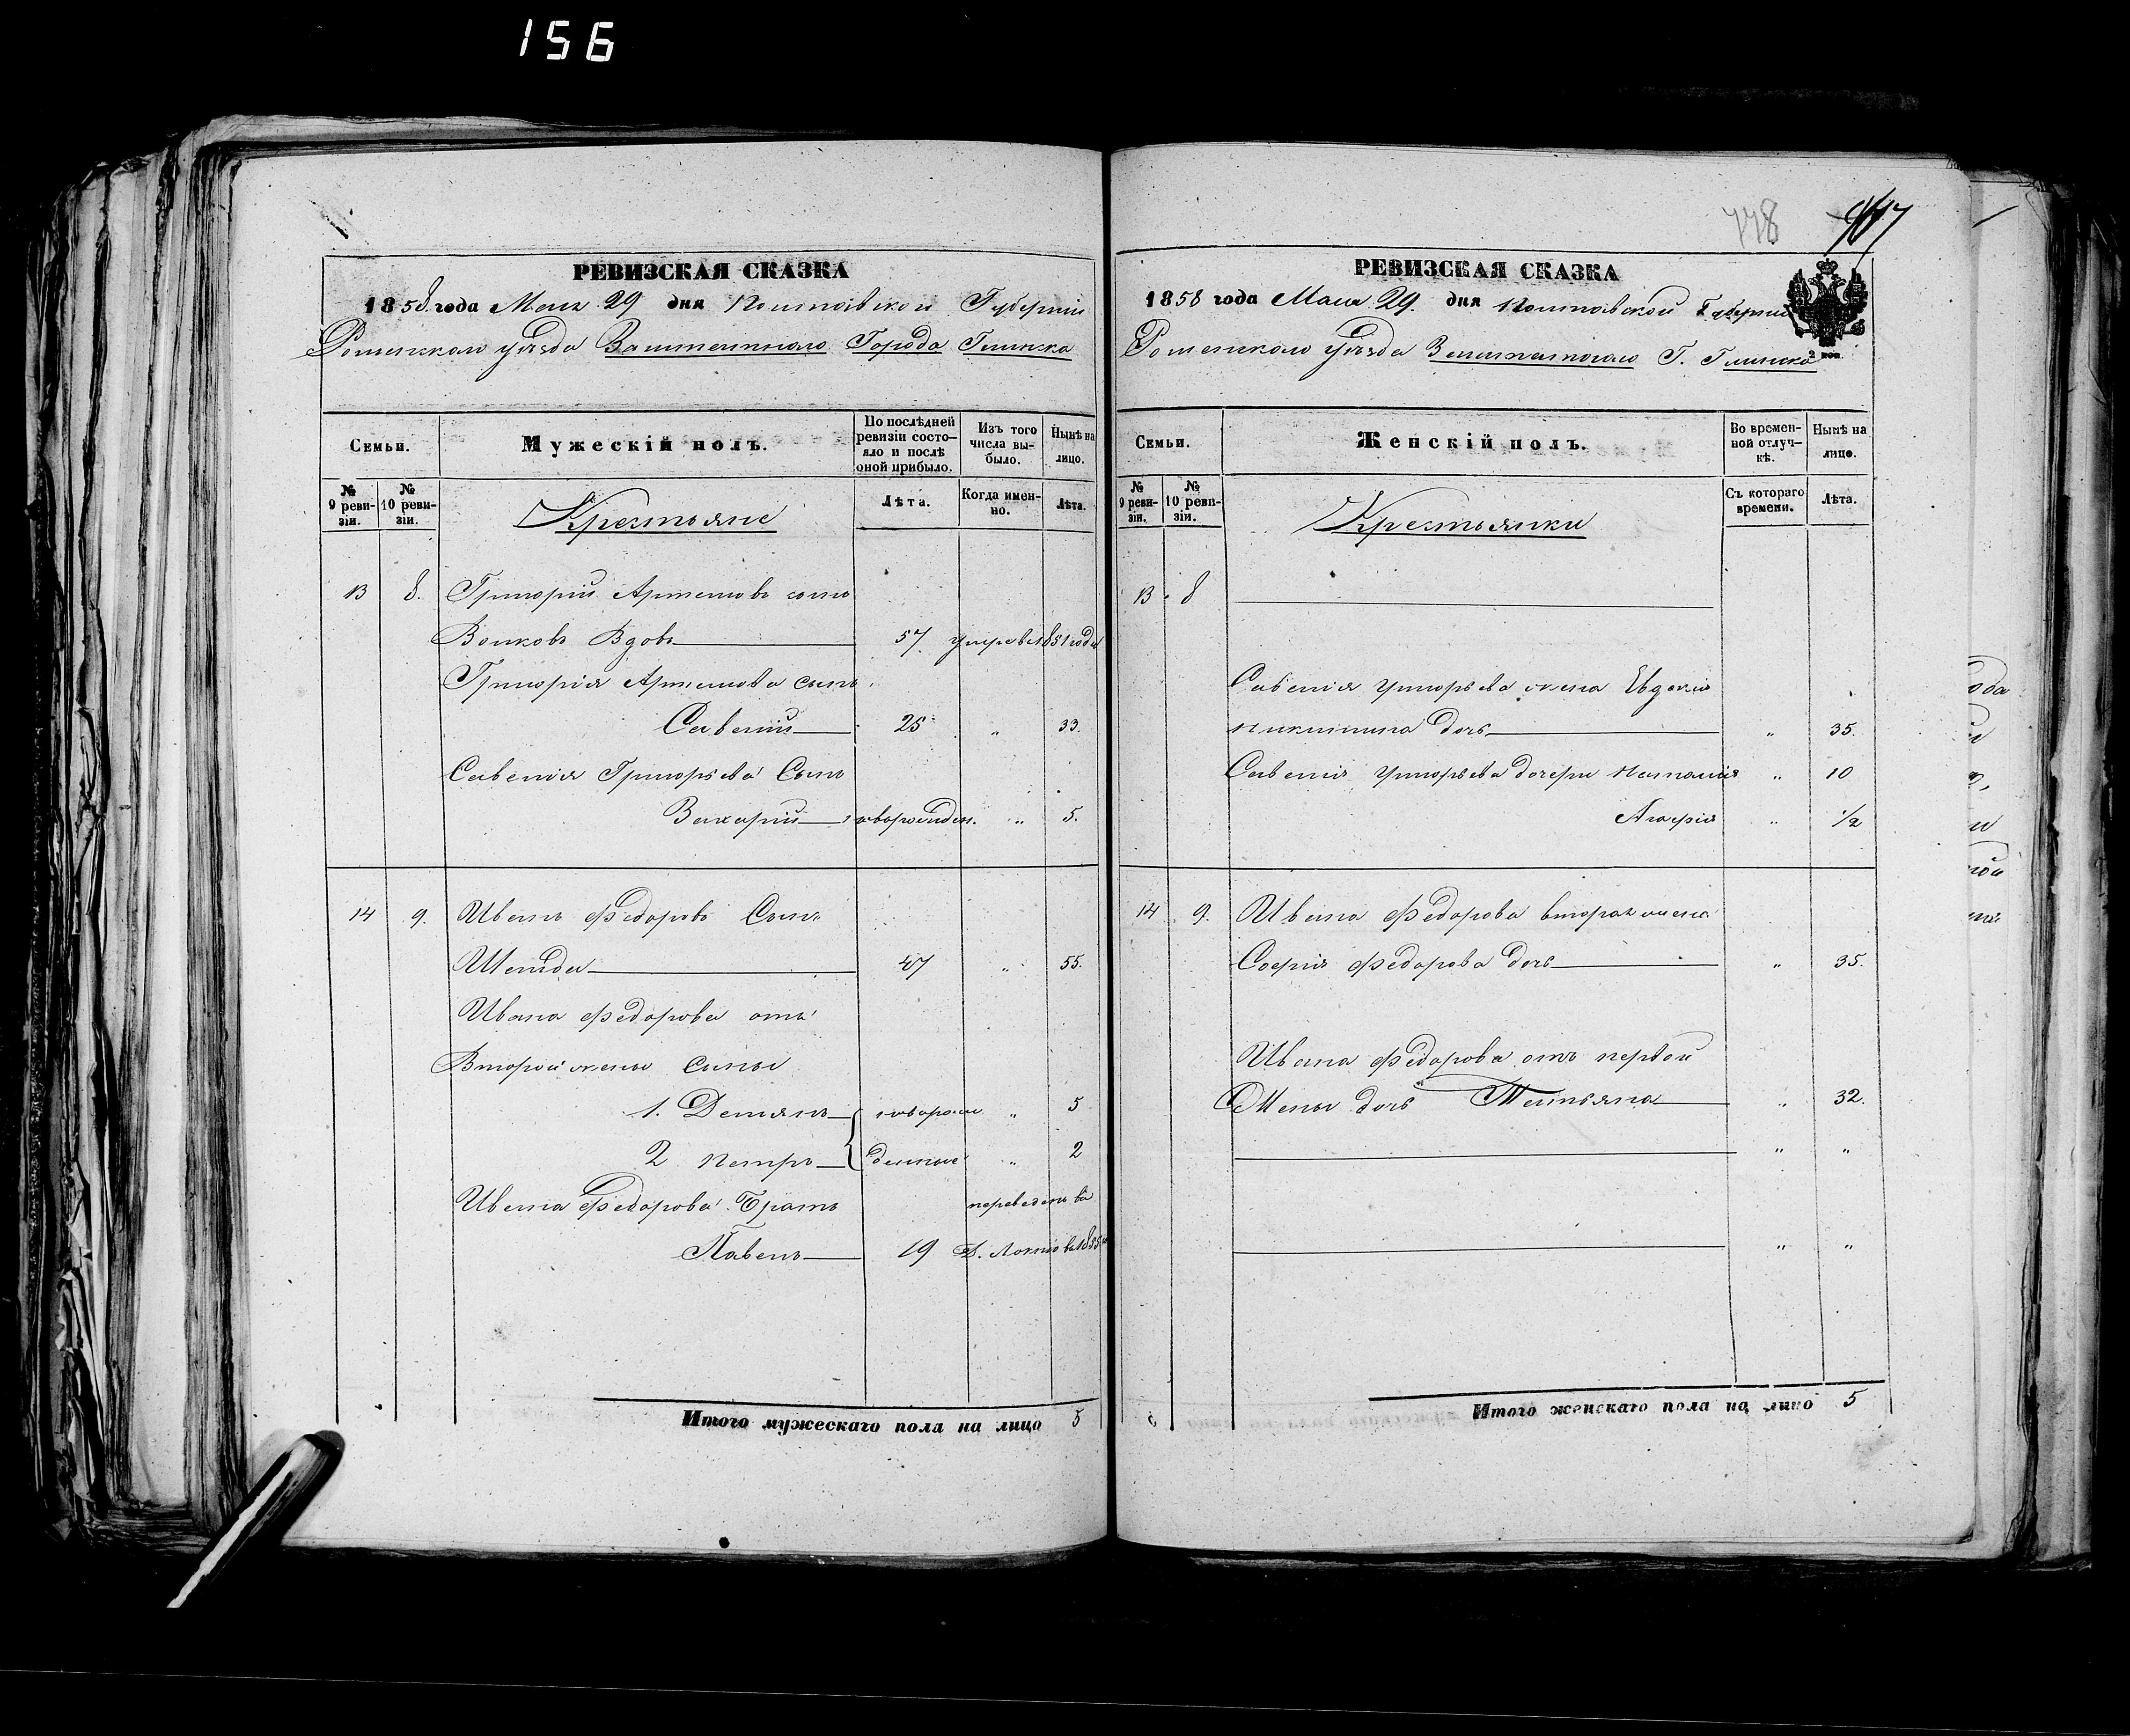 156
РЕВИЗСКАЯ СКАЗКА
1858 года Мая 29 дня Полтавской Губерніи
Роменскаго уѣзда Заштатнаго Города Глинска
Семьи.
Мужескій полъ.
По послѣдней ревизіи состо-
яло и послѣ
оной прибыло.
Изъ того
числа вы-
было.
Нынѣ на
лицо.
№
9 реви-
зіи.
№
10 реви-
зіи.
Крестьяне
Лѣта.
Когда имен-
но.
Лѣта.
13 8. Григорій Артемовъ сынъ
Волковъ Вдовъ 57 умре в 1851 года
Григорія Артемова сынъ
Савелий 25 " 33.
Савелія Григорьева Сынъ
Захарій новорожден. " 5.
14 9. Иванъ Федоровъ Сынъ
47 " 55.
Ивана Федорова отъ
Второй жены сыны
1. Демянъ новорож " 5
2 Петръ денные " 2
Ивана Федорова Братъ переведенъ въ
Павелъ 19
Итого мужескаго пола на лицо 5
778
РЕВИЗСКАЯ СКАЗКА
1858 года Мая 29. дня Полтавской Губерніи
Роменскаго уѣзда Заштатнаго Г. Глинска
2 коп.
Семьи.
Женскій полъ.
Во времен-
ной отлуч-
кѣ.
Нынѣ на
лицо.
№
9 реви-
зіи.
№
10 реви-
зіи.
Крестьянки
Съ котораго
времени.
Лѣта.
13 8
Савелія Григорьева жена Евдокія
Никитина дочь " 35.
Савелія Григорьева дочери Наталія " 10
Агафія " 1/2
14 9. Ивана Федорова вторая жена
Софія Федорова дочь " 35.
Ивана Федорова отъ первой
Жены дочь Татьяна " 32.
" "
" "
Итого женскаго пола на лицо 5